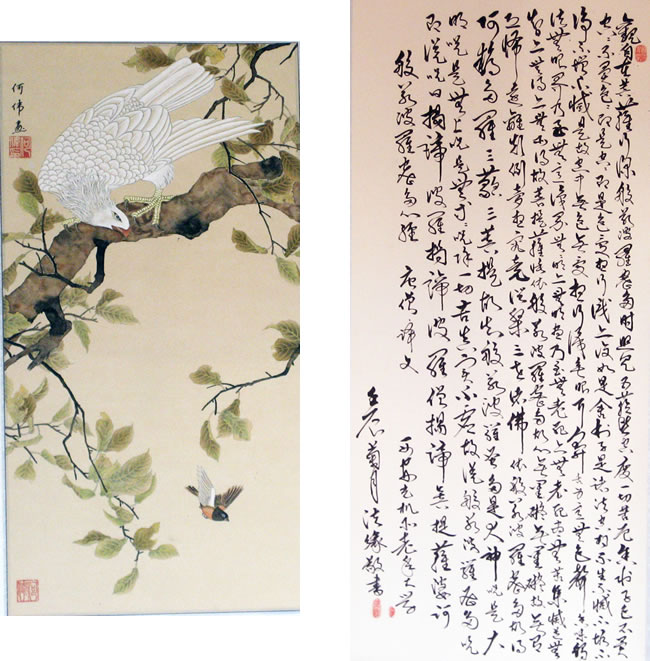 何伟画
觀自在菩薩行深般若波羅蜜多時照見五蘊皆空度一切苦厄舍利子色不異
空空不異色色即是空空即是色受想行識亦復如是舍利子是諸法空相不生不滅不垢不
淨不增不減是故空中無色無受想行識無眼耳鼻舌身意無色聲香味觸
法無眼界乃至無意識界無無明亦無無明盡乃至無老死亦無老死盡無苦集滅道無
智亦無得以無所得故菩提薩埵依般若波羅蜜多故心無罣礙無罣礙故無有
恐怖遠離顛倒夢想究竟涅槃三世諸佛依般若波羅蜜多故得
阿耨多羅三藐三菩提故知般若波羅蜜多是大神咒是大
明咒是無上咒是無等等咒能除一切苦真實不虛故說般若波羅蜜多咒
即說咒曰揭諦波羅揭諦波羅僧揭諦菩提薩婆訶
般若波羅蜜多心經 唐僧譯文
西安光机所老年大学
壬辰菊月法缘敬書